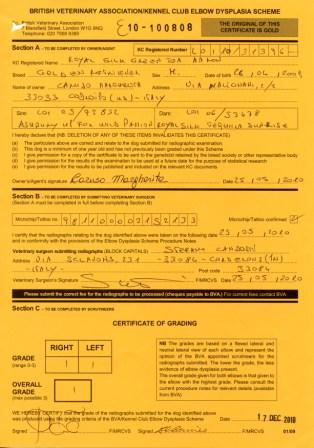 BRITISH VETERINARY ASSOCIATION/KENNEL CLUB ELBOW DYSPLASIA SCHEME
British Veterinary Association
7 Mansfield Street, London W1G 9NQ
Telephone: 020 7908 6380
E10-100808
THE ORIGINAL OF THIS CERTIFICATE IS GOLD
Section A - TO BE COMPLETED BY OWNER/AGENT
KC Registered Number
KC Registered Name ROYAL SILK
Breed GOLDEN RETRIEVER Sex M.
Name of owner CARUSO MARGHERITA Address VIA
33033 - ITALY
Sire: LOI Dam: LOI
ROYAL SILK TEQUILA SUNRISE
I hereby declare that (NB. DELETION OF ANY OF THESE ITEMS INVALIDATES THIS CERTIFICATE)
(a) The particulars above are correct and relate to the dog submitted for radiographic examination
(b) This dog is a minimum of one year old and has not previously been graded under the Scheme
(c) I give permission for a copy of the certificate to be sent to the geneticist retained by the breed society or other representative body
(d) I give permission for the results of the examination to be used at a future date for the purpose of statistical research
(e) I give permission for the results to be published and included on the relevant KC documents.
Owner's/agent's signature Caruso Margherita Date 25, 05, 2010
Section B - TO BE COMPLETED BY SUBMITTING VETERINARY SURGEON
(Section A must be completed in full before completing Section B)
Microchip/Tattoo No. Microchip/Tattoo confirmed
I certify that the radiographs relating to the dog identified above were taken on the following date
and in conformity with the provisions of the Elbow Dysplasia Scheme Procedure Notes
Veterinary surgeon submitting radiographs (BLOCK CAPITALS) STEFANO
Address VIA 231 - 33084 -
- ITALY - Post code 33084
Veterinary Surgeon's Signature MRCVS Date 25, 05, 2010
Please submit the correct fee for the radiographs to be processed (cheques payable to BVA). For current fees contact BVA
Section C - TO BE COMPLETED BY SCRUTINEERS
CERTIFICATE OF GRADING
RIGHT LEFT
GRADE
(range 0-3) 1 1
OVERALL GRADE
(max possible 3) 1
NB The grades are based on a flexed lateral and neutral lateral view of each elbow and represent the opinion of the BVA appointed scrutineers for the radiographs submitted. The lower the grade, the less evidence of elbow dysplasia present.
The overall grade given for both elbows is that given to the elbow with the highest grade. Please consult the current procedure notes for relevant details (available from BVA)
WE HEREBY CERTIFY that the grade of the radiographs submitted of the dog identified above
was produced using the grading criteria of the BVA/Kennel Club Elbow Dysplasia Scheme Date 17 DEC 2010
Signed F/MRCVS Signed F/MRCVS 01/08